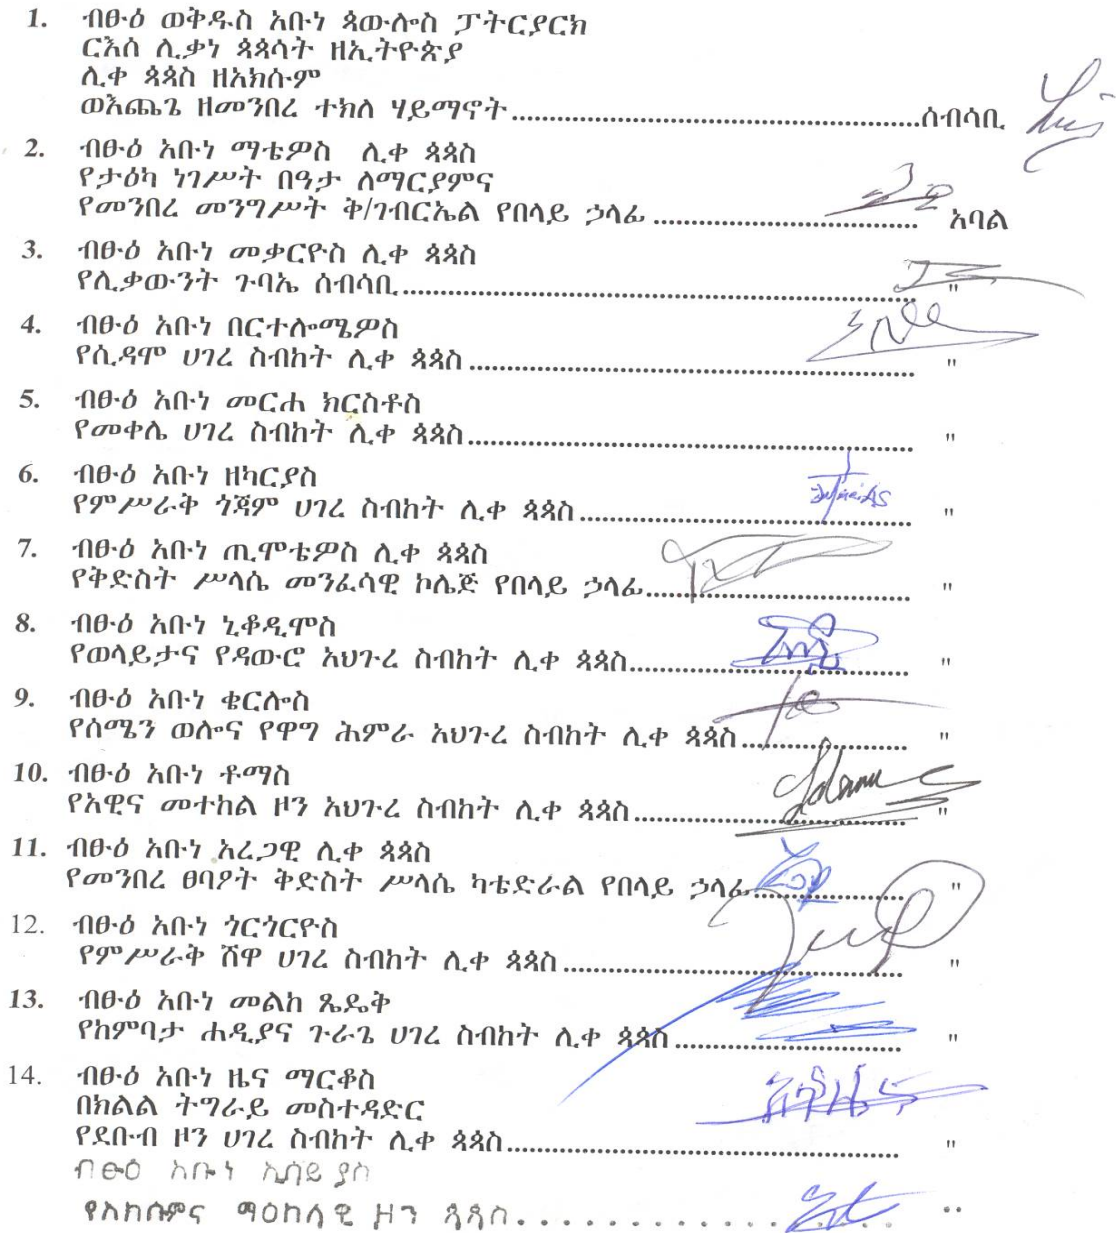 1. ብፁዕ ወቅዱስ አቡነ ጳውሎስ ፓትርያርክ
ርእሰ ሊቃነ ጳጳሳት ዘኢትዮጵያ
ሊቀ ጳጳስ ዘአክሱም
ወእጨጌ ዘመንበረ ተክለ ሃይማኖት.....................................................ሰብሳቢ
2. ብፁዕ አቡነ ማቴዎስ ሊቀ ጳጳስ
የታዕካ ነገሥት በዓታ ለማርያምና
የመንበረ መንግሥት ቅ/ገብርኤል የበላይ ኃላፊ .................................. አባል
3. ብፁዕ አቡነ መቃርዮስ ሊቀ ጳጳስ
የሊቃውንት ጉባኤ ሰብሳቢ.................................................................. "
4. ብፁዕ አቡነ በርተሎሜዎስ
የሲዳሞ ሀገረ ስብከት ሊቀ ጳጳስ ......................................................... "
5. ብፁዕ አቡነ መርሐ ክርስቶስ
የመቀሌ ሀገረ ስብከት ሊቀ ጳጳስ......................................................... "
6. ብፁዕ አቡነ ዘካርያስ
የምሥራቅ ጎጃም ሀገረ ስብከት ሊቀ ጳጳስ ........................................... "
7. ብፁዕ አቡነ ጢሞቴዎስ ሊቀ ጳጳስ
የቅድስት ሥላሴ መንፈሳዊ ኮሌጅ የበላይ ኃላፊ.................................. "
8. ብፁዕ አቡነ ኒቆዲሞስ
የወላይታና የዳውሮ አህጉረ ስብከት ሊቀ ጳጳስ.................................... "
9. ብፁዕ አቡነ ቄርሎስ
የሰሜን ወሎና የዋግ ሕምራ አህጉረ ስብከት ሊቀ ጳጳስ...................... "
10. ብፁዕ አቡነ ቶማስ
የአዊና መተከል ዞን አህጉረ ስብከት ሊቀ ጳጳስ................................... "
11. ብፁዕ አቡነ አረጋዊ ሊቀ ጳጳስ
የመንበረ ፀባዖት ቅድስት ሥላሴ ካቴድራል የበላይ ኃላፊ.................... "
12. ብፁዕ አቡነ ጎርጎርዮስ
የምሥራቅ ሸዋ ሀገረ ስብከት ሊቀ ጳጳስ ............................................ "
13. ብፁዕ አቡነ መልከ ጼዴቅ
የከምባታ ሐዲያና ጉራጌ ሀገረ ስብከት ሊቀ ጳጳስ ............................. "
14. ብፁዕ አቡነ ዜና ማርቆስ
በክልል ትግራይ መስተዳድር
የደቡብ ዞን ሀገረ ስብከት ሊቀ ጳጳስ................................................... "
ብፁዕ አቡነ ኢሳይያስ
የአክሱምና ማዕከላዊ ዞን ጳጳስ.................. "